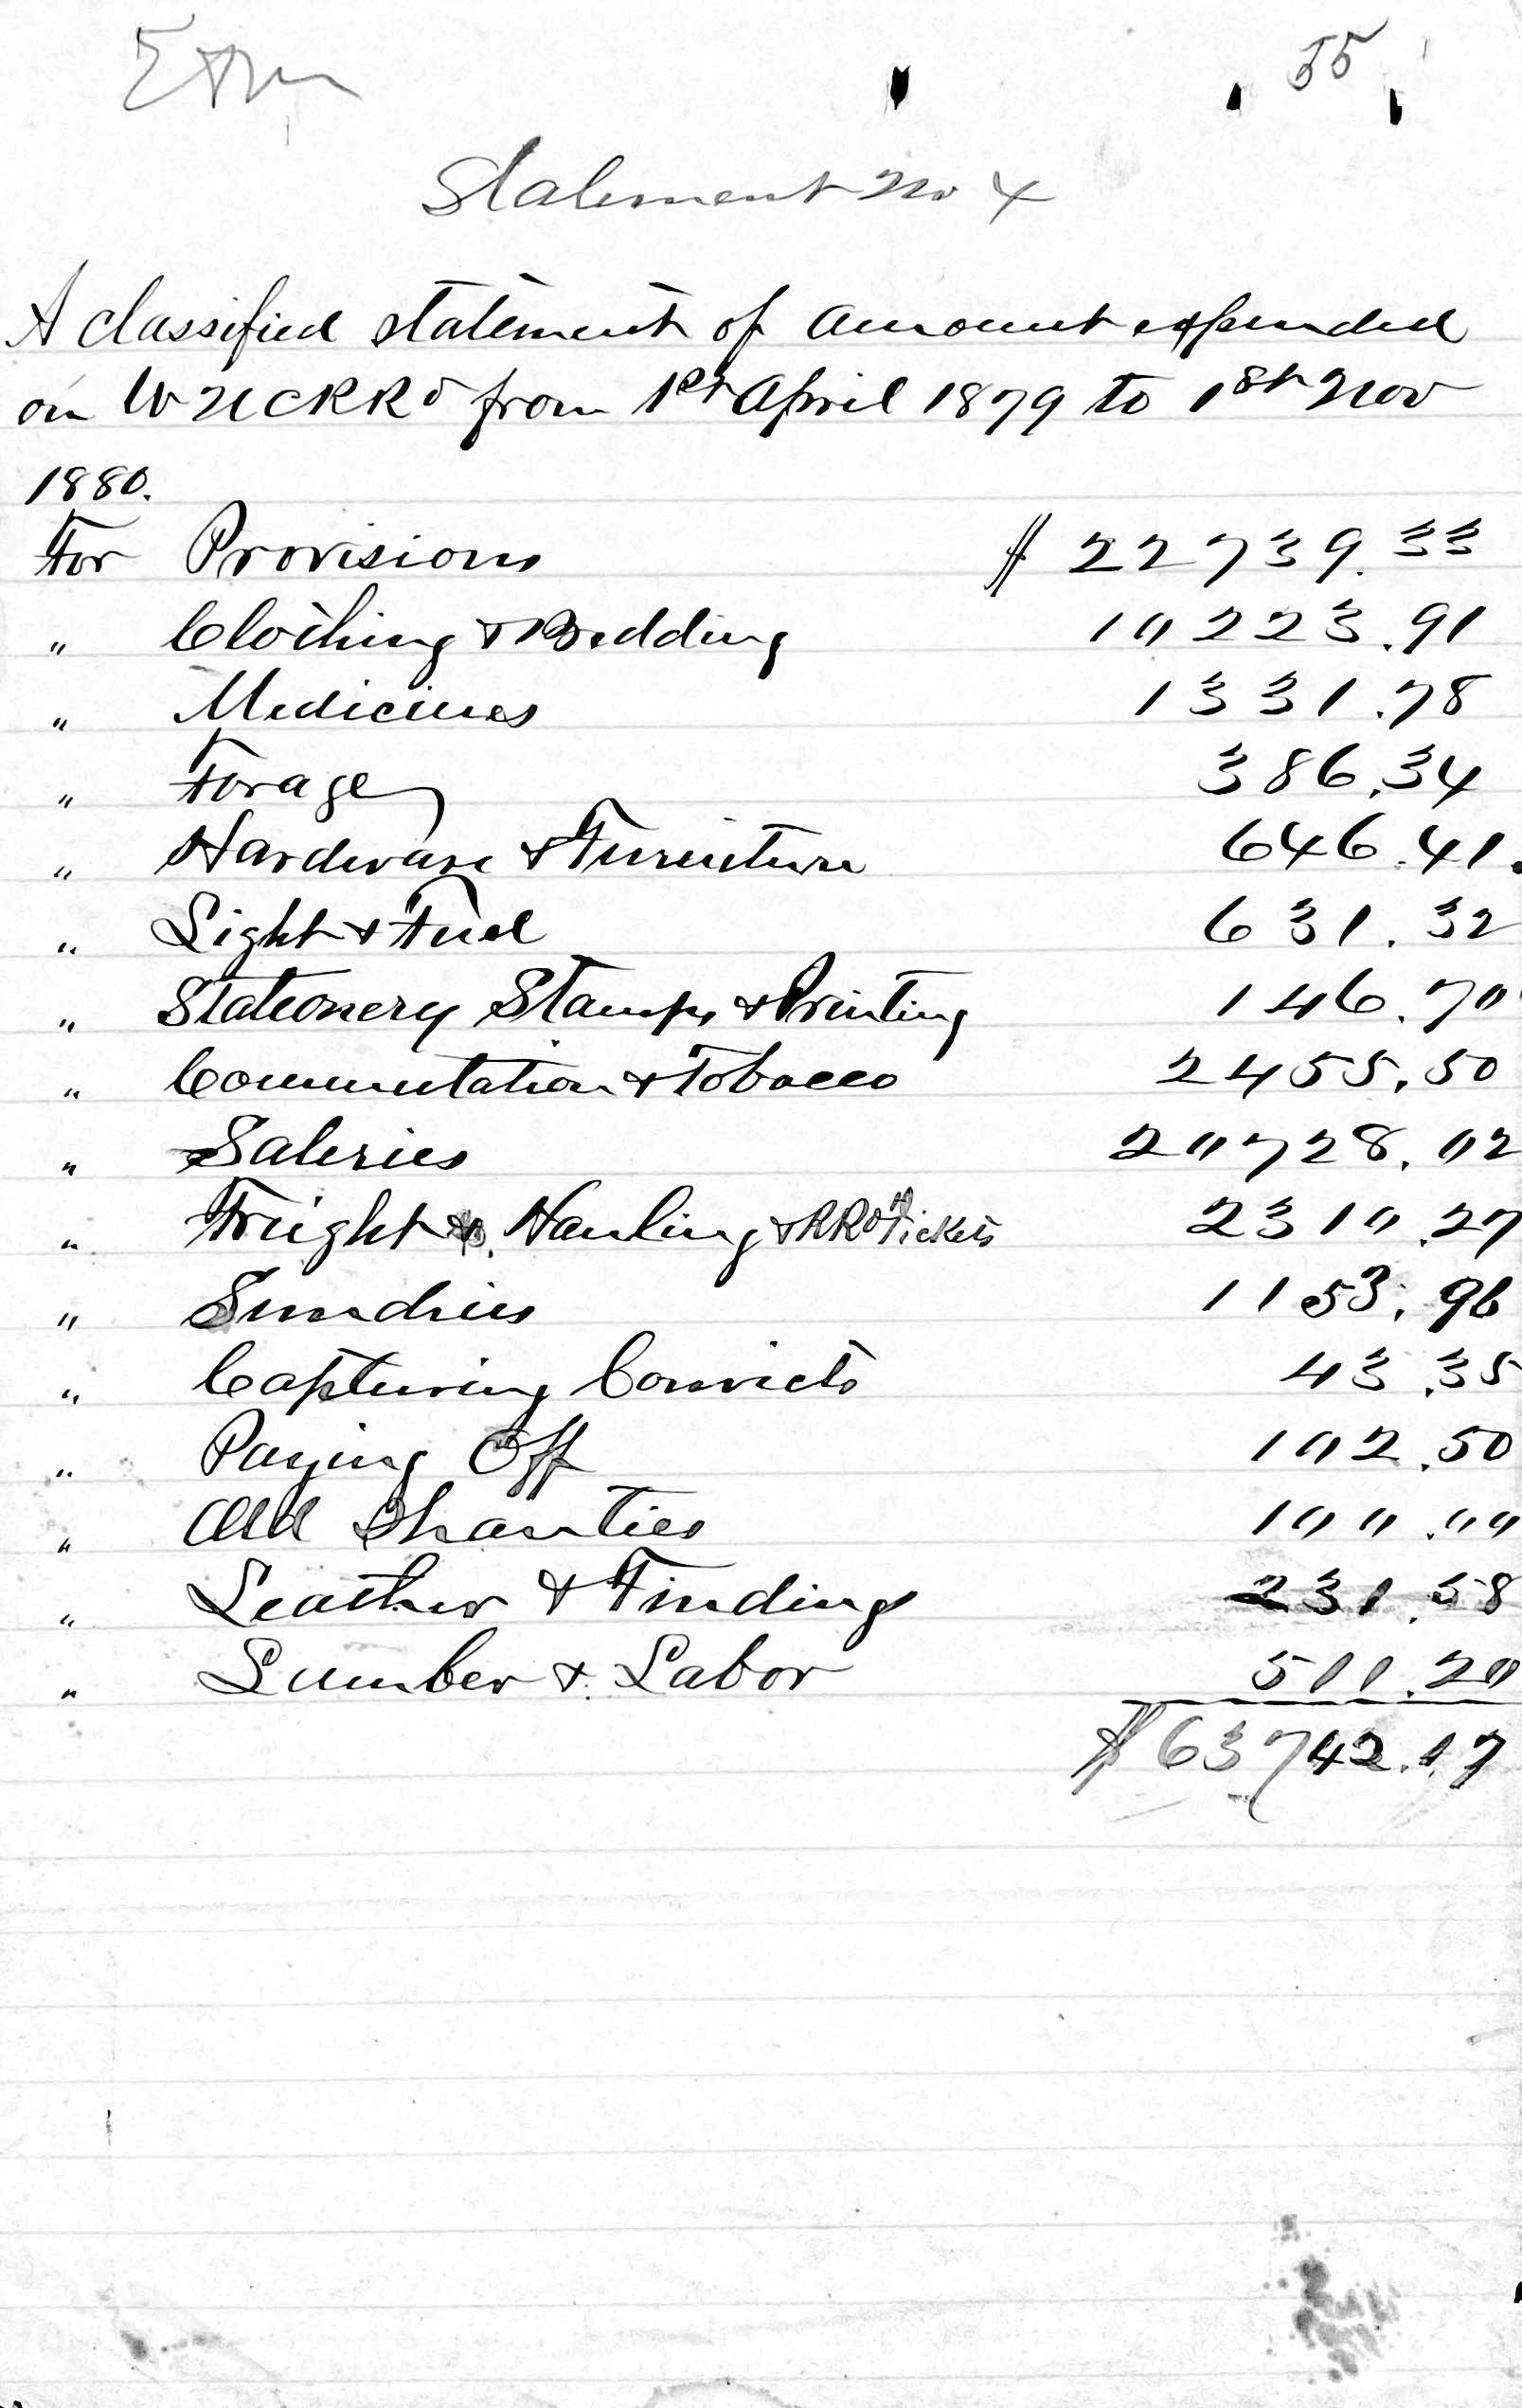 55
Statement No 4
A classified statement of amount expended
on WNCRRd from 1st April 1879 to 1st Nov
1880.
For Provisions $ 22739.33
" Clothing & Bedding 10223.91
" Medicines 1331.78
" Forage 386.34
" Hardware & Furniture 646.41.
" Light & Fuel 631.32
" Stationery Stamps & Printing 146.70
" Commutation & Tobacco 2455.50
" Saleries 20728.02
" Freight & Hauling & RRd Tickets 2310.27
" Sundries 1153.96
" Capturing Convicts 43.35
" Paying Off 102.50
" Old Shanties 100.00
" Leather & Findings 231.58
" Lumber & Labor 511.20
$ 63742.17